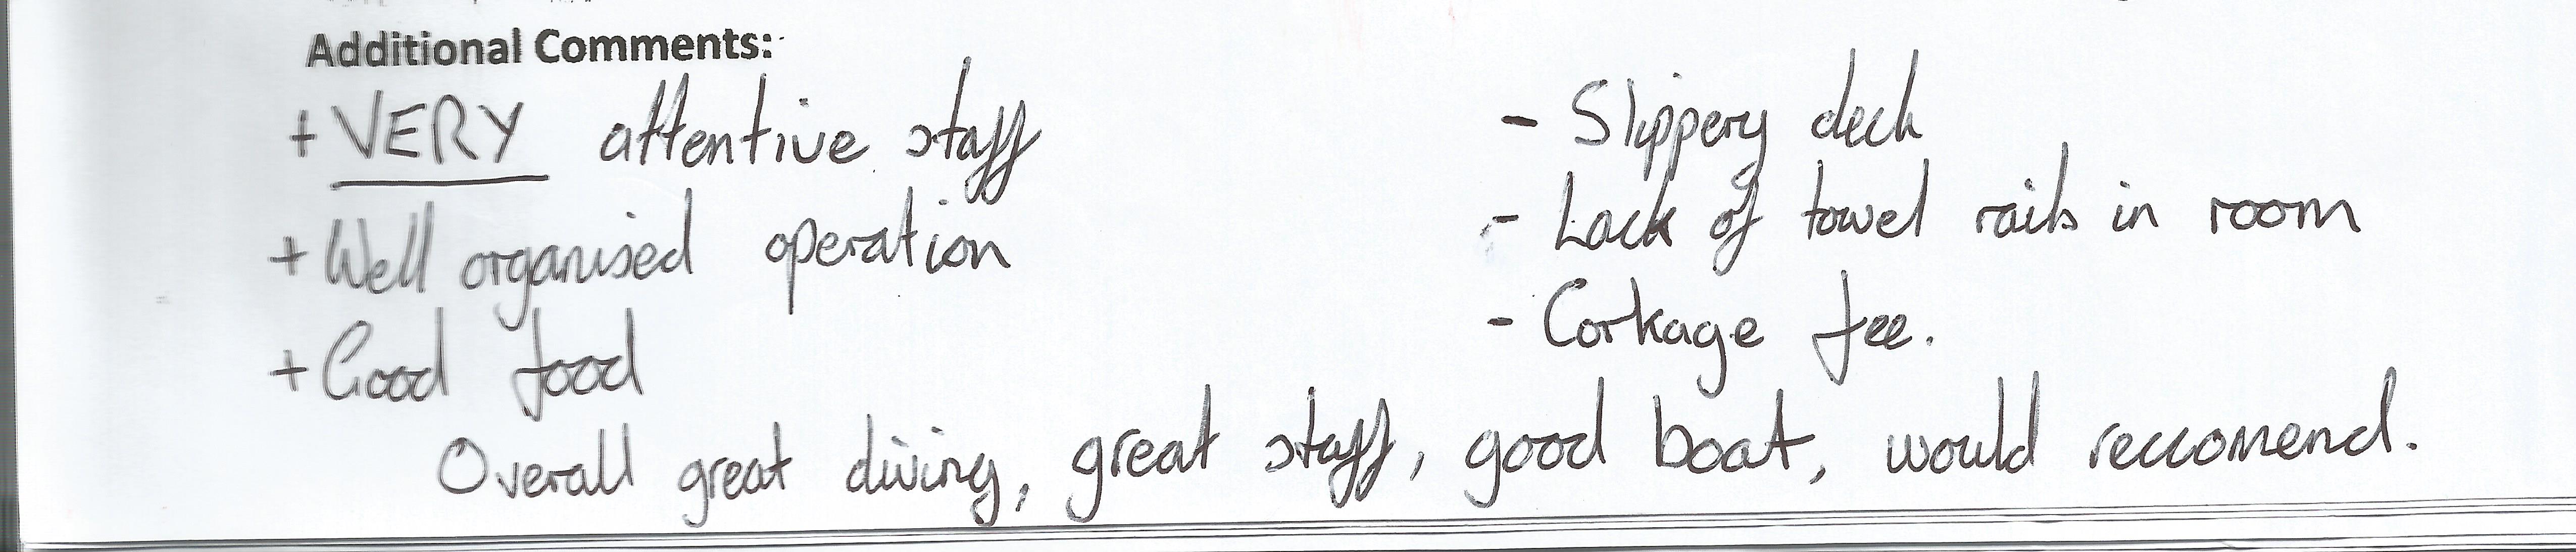 Additional Comments:
+ VERY attentive staff
+ Well organised operation
+ Good food
- Slippery deck
- Lack of towel rails in room
- Corkage fee.
Overall great diving, great staff, good boat, would reccomend.